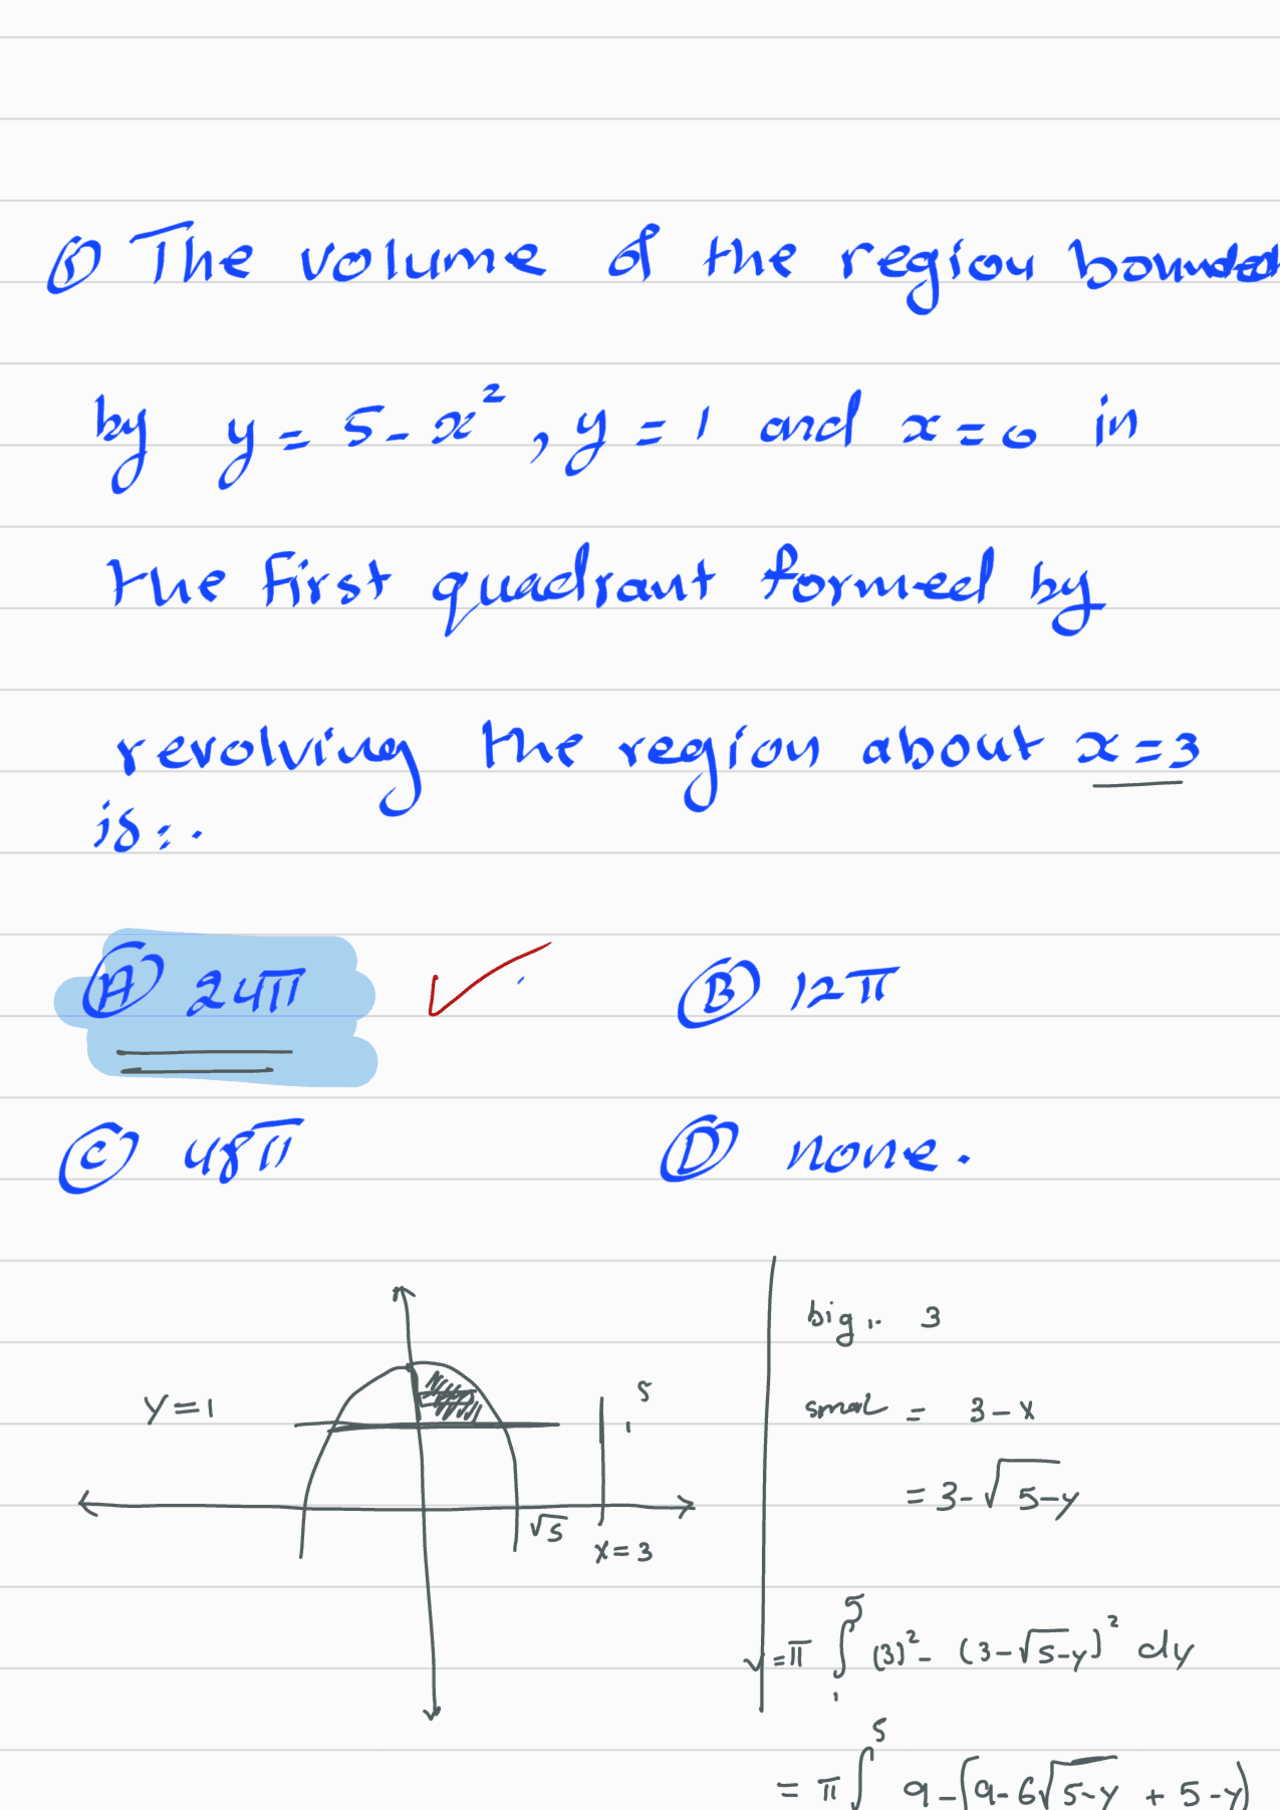 ⑤ The volume of the region bounded
by y = 5 - x², y = 1 and x = 0 in
the first quadrant formed by
revolving the region about x = 3
is:.
Ⓐ 24π Ⓑ 12π
Ⓒ 48π Ⓓ none.
big: 3
y = 1
5
1
small = 3 - x
= 3 - √5-y
√5
x = 3
V = π ∫₁⁵ (3)² - (3 - √5-y)² dy
= π ∫⁵ 9 - (9 - 6√5-y + 5 - y)